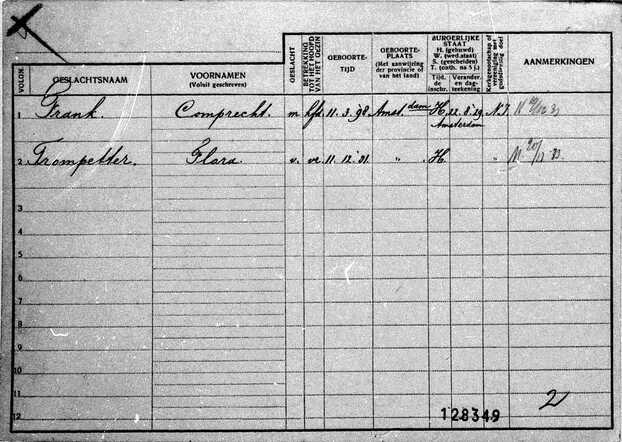 VOLGN.
GESLACHTSNAAM
VOORNAMEN
(Voluit geschreven)
GESLACHT
BETREKKING
TOT HET HOOFD
VAN HET GEZIN
GEBOORTE-
TIJD
GEBOORTE-
PLAATS
(Met aanwijzing
der provincie of
van het land)
BURGERLIJKE
STAAT
H. (gehuwd)
W. (wed.staat)
S. (gescheiden)
T. (onth. na 5 j.)
Tijd. de inschr.
Verander. en dag-teekening
Kerkgenootschap of
vereeniging met
godsdienstig doel
AANMERKINGEN
1 Frank. Comprecht. m hfd 11. 3. 98 Amst.dam H 22.8.29 N.I
Amsterdam
2 Trompetter. Flora v. vr 11. 12. 01. " H. " 
3
4
5
6
7
8
9
10
11
12
2
128349